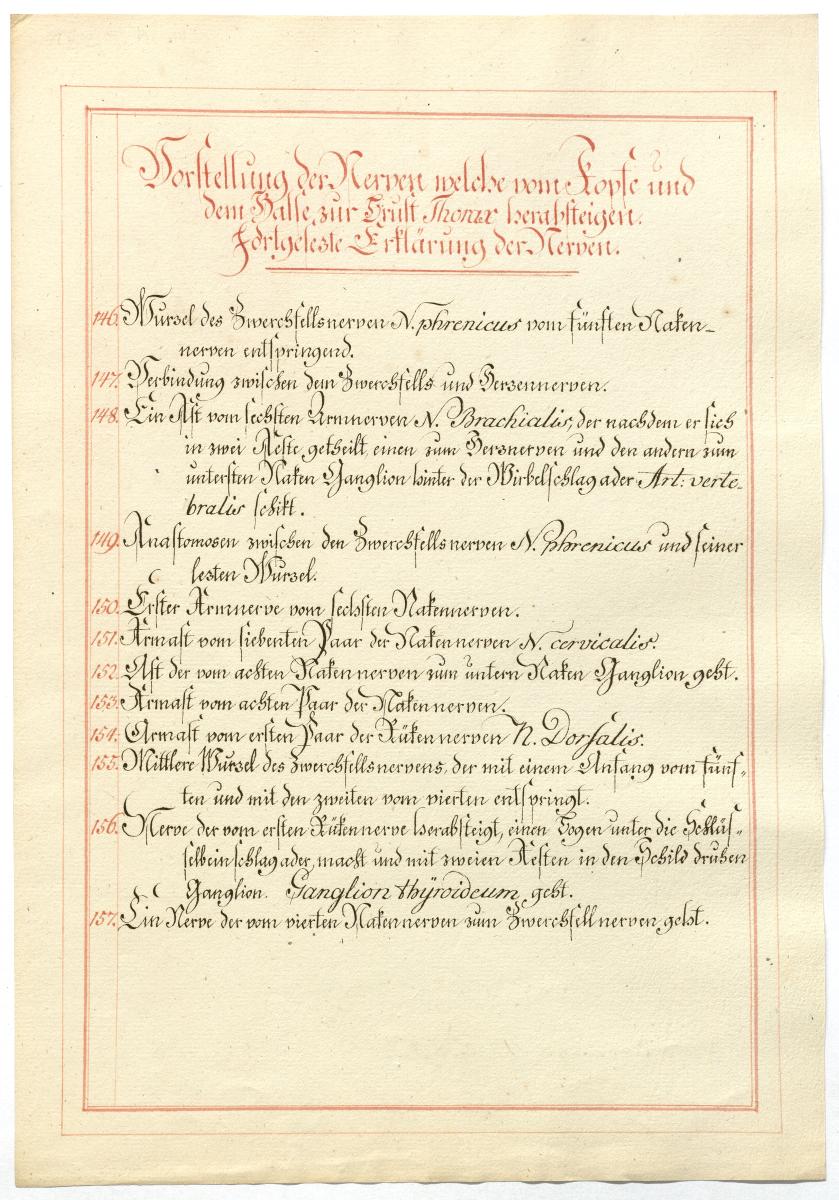 Vorstellung der Nerven welche vom Kopfe und
dem Halse zur Brust Thorax herabsteigen.
Fortgesezte Erklärung der Nerven.
146. Wurzel des Zwerchfellsnerven N. phrenicus vom fünften Naken-
nerven entspringend.
147. Verbindung zwischen dem Zwerchfells und Herzennerven.
148. Ein Ast vom sechsten Armnerven N. Brachialis, der nachdem er sich
in zwei Aeste getheilt einen zum Herznerven und den andern zum
untersten Naken Ganglion hinter der Wirbelschlagader Art: verte-
bralis schikt.
149. Anastomosen zwischen den Zwerchfellsnerven N. phrenicus und seiner
lezten Wurzel.
150. Erster Armnerve vom sechsten Nakennerven.
151. Armast vom siebenten Paar der Nakennerven N. cervicalis.
152. Ast der vom achten Nakennerven zum untern Naken Ganglion geht.
153. Armast vom achten Paar der Nakennerven.
154. Armast vom ersten Paar der Rükennerven N. Dorsalis.
155. Mittlere Wurzel des Zwerchfellsnervens, der mit einem Anfang vom fünf-
ten und mit den zweiten vom vierten entspringt.
156. Nerve der vom ersten Rükennerve herabsteigt, einen Bogen unter die Schlüs-
selbeinschlagader, macht und mit zweien Aesten in den Schild druhen
Ganglion. Ganglion thÿroideum geht.
157. Ein Nerve der vom vierten Nakennerven zum Zwerchfellnerven geht.